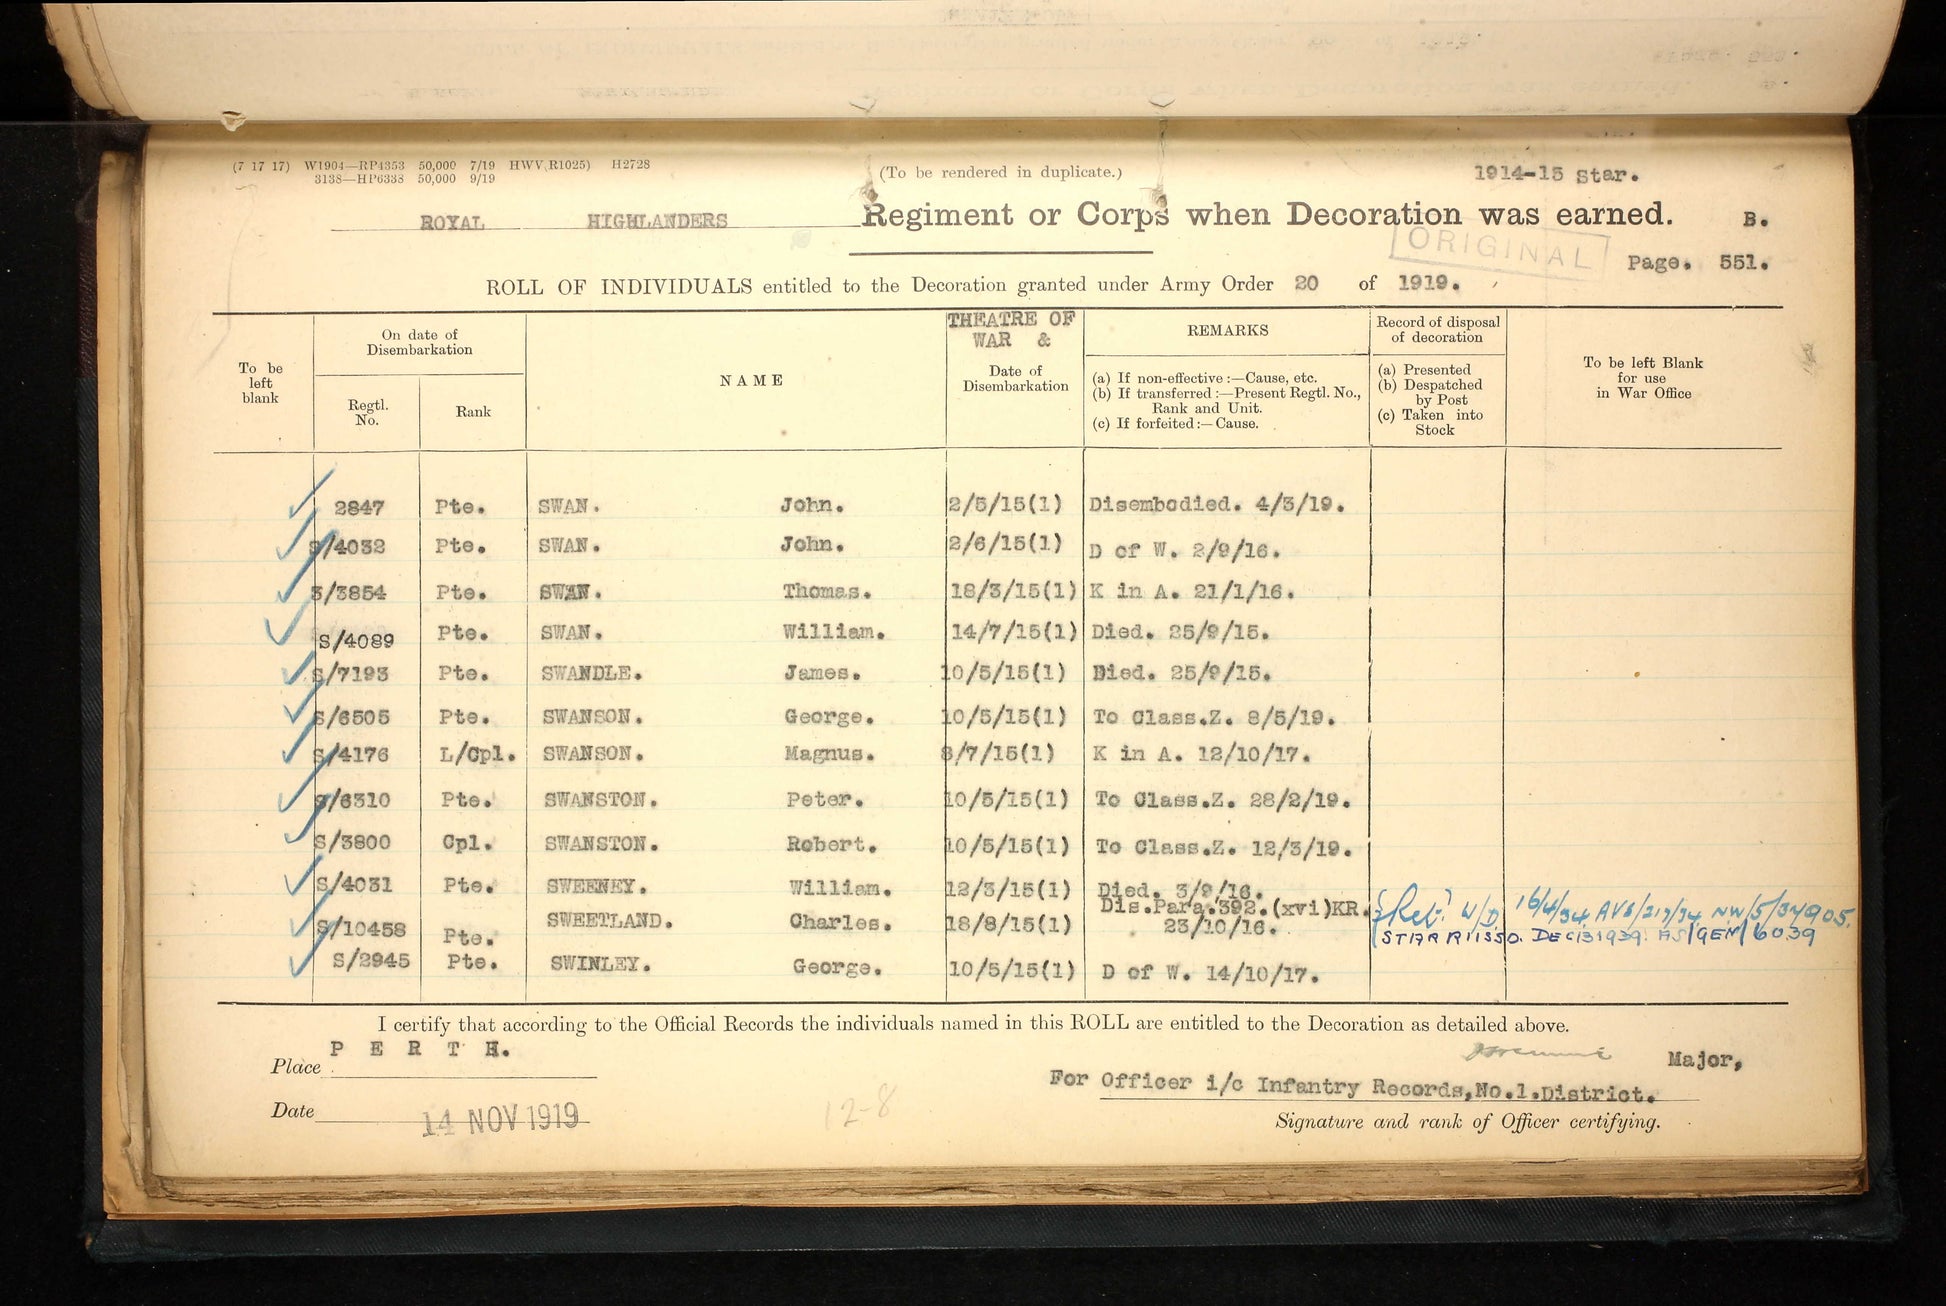 (7 17 17) W1904—RP4353 50,000 7/19 HWV(R1025) H2728
3138—HP6338 50,000 9/19
(To be rendered in duplicate.)
1914-15 Star.
ROYAL HIGHLANDERS Regiment or Corps when Decoration was earned. B.
ORIGINAL
Page. 551.
ROLL OF INDIVIDUALS entitled to the Decoration granted under Army Order 20 of 1919.
To be left blank
On date of Disembarkation
Regtl. No.
Rank
NAME
THEATRE OF WAR &
Date of Disembarkation
REMARKS
(a) If non-effective :—Cause, etc.
(b) If transferred :—Present Regtl. No., Rank and Unit.
(c) If forfeited :—Cause.
Record of disposal of decoration
(a) Presented
(b) Despatched by Post
(c) Taken into Stock
To be left Blank for use in War Office
2847 Pte. SWAN. John. 2/5/15(1) Disembodied. 4/3/19.
S/4032 Pte. SWAN. John. 2/6/15(1) D of W. 2/9/16.
3/3854 Pte. SWAN. Thomas. 18/3/15(1) K in A. 21/1/16.
S/4089 Pte. SWAN. William. 14/7/15(1) Died. 25/9/15.
S/7193 Pte. SWANDLE. James. 10/5/15(1) Died. 25/9/15.
S/6505 Pte. SWANSON. George. 10/5/15(1) To Class.Z. 8/5/19.
S/4176 L/Cpl. SWANSON. Magnus. 8/7/15(1) K in A. 12/10/17.
S/6310 Pte. SWANSTON. Peter. 10/5/15(1) To Class.Z. 28/2/19.
S/3800 Cpl. SWANSTON. Robert. 10/5/15(1) To Class.Z. 12/3/19.
S/4031 Pte. SWEENEY. William. 12/3/15(1) Died. 3/9/16.
S/10458 Pte. SWEETLAND. Charles. 18/8/15(1) Dis.Para.392.(xvi)KR. 23/10/16.
16/4/34 NW/5/34905.
STAR R11550. DEC 1939. AS/GEN/6039
S/2945 Pte. SWINLEY. George. 10/5/15(1) D of W. 14/10/17.
I certify that according to the Official Records the individuals named in this ROLL are entitled to the Decoration as detailed above.
Place PERTH.
Major,
For Officer i/c Infantry Records,No.1.District.
Date 14 NOV 1919
12-8
Signature and rank of Officer certifying.